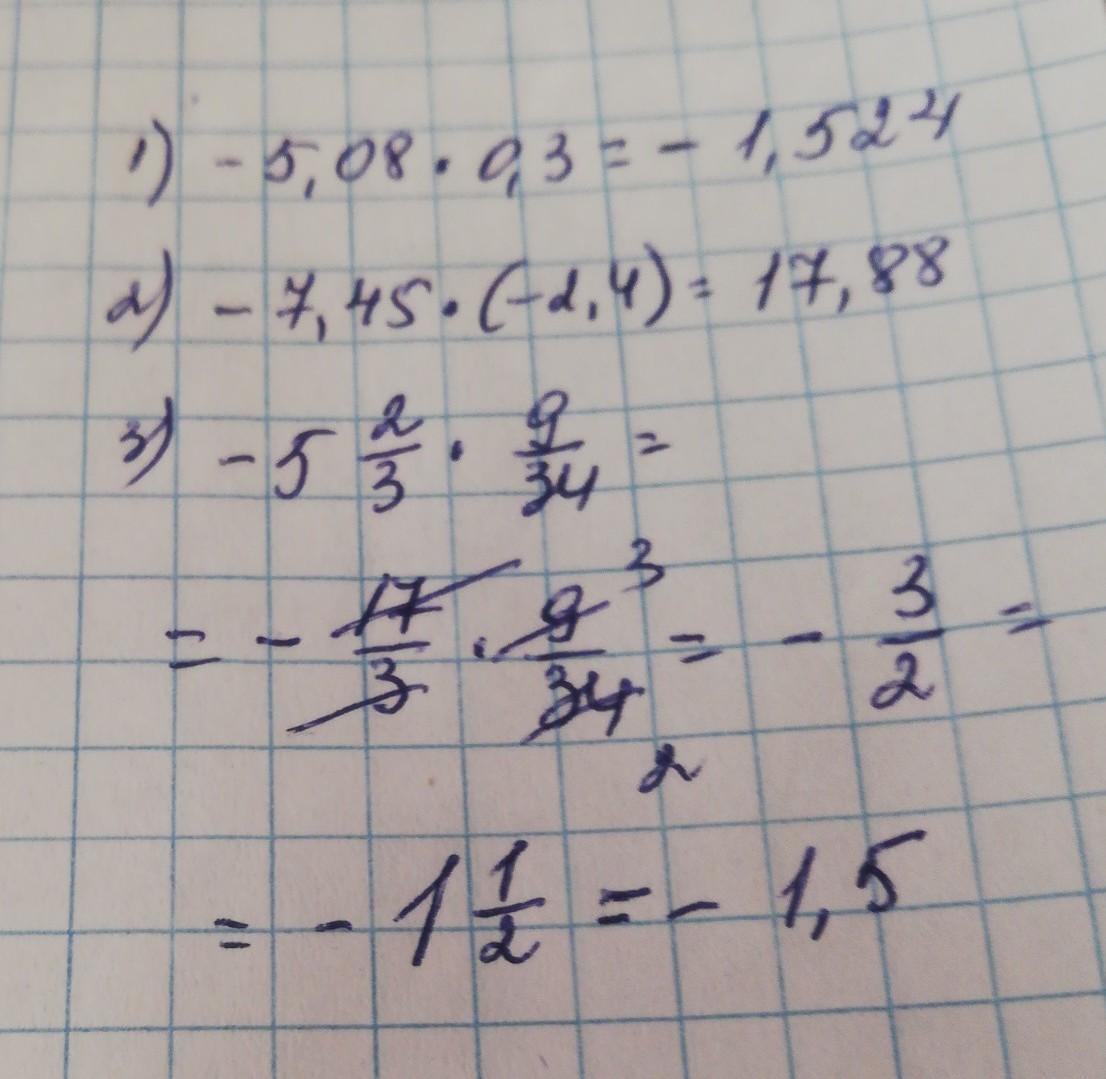 1) - 5,08 · 0,3 = - 1,524
2) - 7,45 · (-2,4) = 17,88
3) - 5 2/3 · 9/34 =
= - 17/3 · 9/34 3 2 = - 3/2 =
= - 1 1/2 = - 1,5